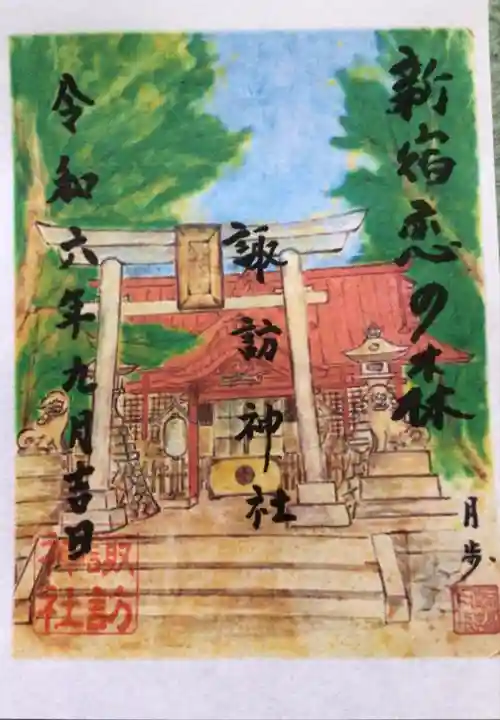 新宿恋の森
諏訪神社
令和六年九月吉日
月歩
諏訪
神社